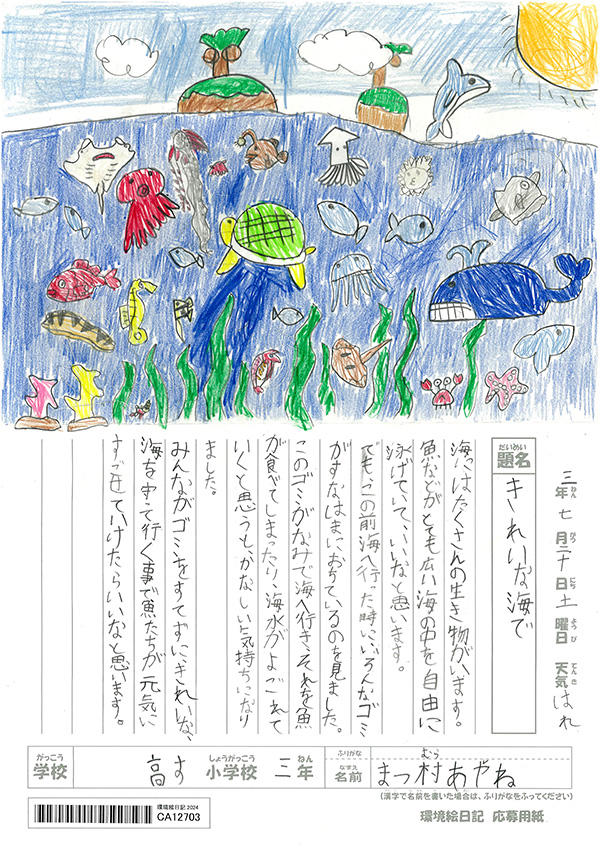 三年 七月二十日 土曜日 天気 はれ
ねん がつ にち ようび てんき
だいめい
題名 きれいな海で
海にはたくさんの生き物がいます。
魚などがとても広い海の中を自由に
泳げていて、いいなと思います。
でも、この前海へ行った時に、いろんなゴミ
がすなはまにおちているのを見ました。
このゴミがなみで海へ行き、それを魚
が食べてしまったり、海水がよごれて
いくと思うと、かなしい気持ちになり
ました。
みんながゴミをすてずに、きれいな、
海を守って行く事で魚たちが元気に
すごせていけたらいいなと思います。
がっこう しょうがっこう ねん ふりがな むら
学校 高す 小学校 三年 なまえ 名前 まつ村あやね
(漢字で名前を書いた場合は、ふりがなをふってください)
環境絵日記 2024
CA12703
環境絵日記 応募用紙